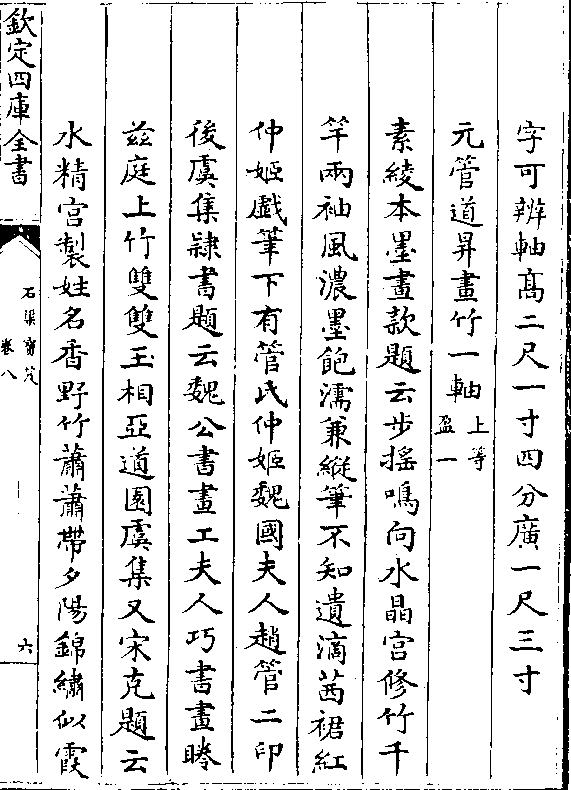 字可辨軸髙二尺一寸四分廣一尺三寸
元管道昇畫竹一軸上等盈一
素綾本墨畫款題云步摇鳴向水晶宫修竹千
竿兩袖風濃墨飽濡兼縱筆不知遺滴茜裙紅
仲姬戲筆下有管氏仲姬魏國夫人趙管二印
後虞集隸書題云魏公書畫工夫人巧書畫聯
兹庭上竹雙雙玉相亞道園虞集又宋克題云
水精宫製姓名香野竹蕭蕭帶夕陽錦繡似霞
欽定四庫全書
石渠寶笈
卷八
六